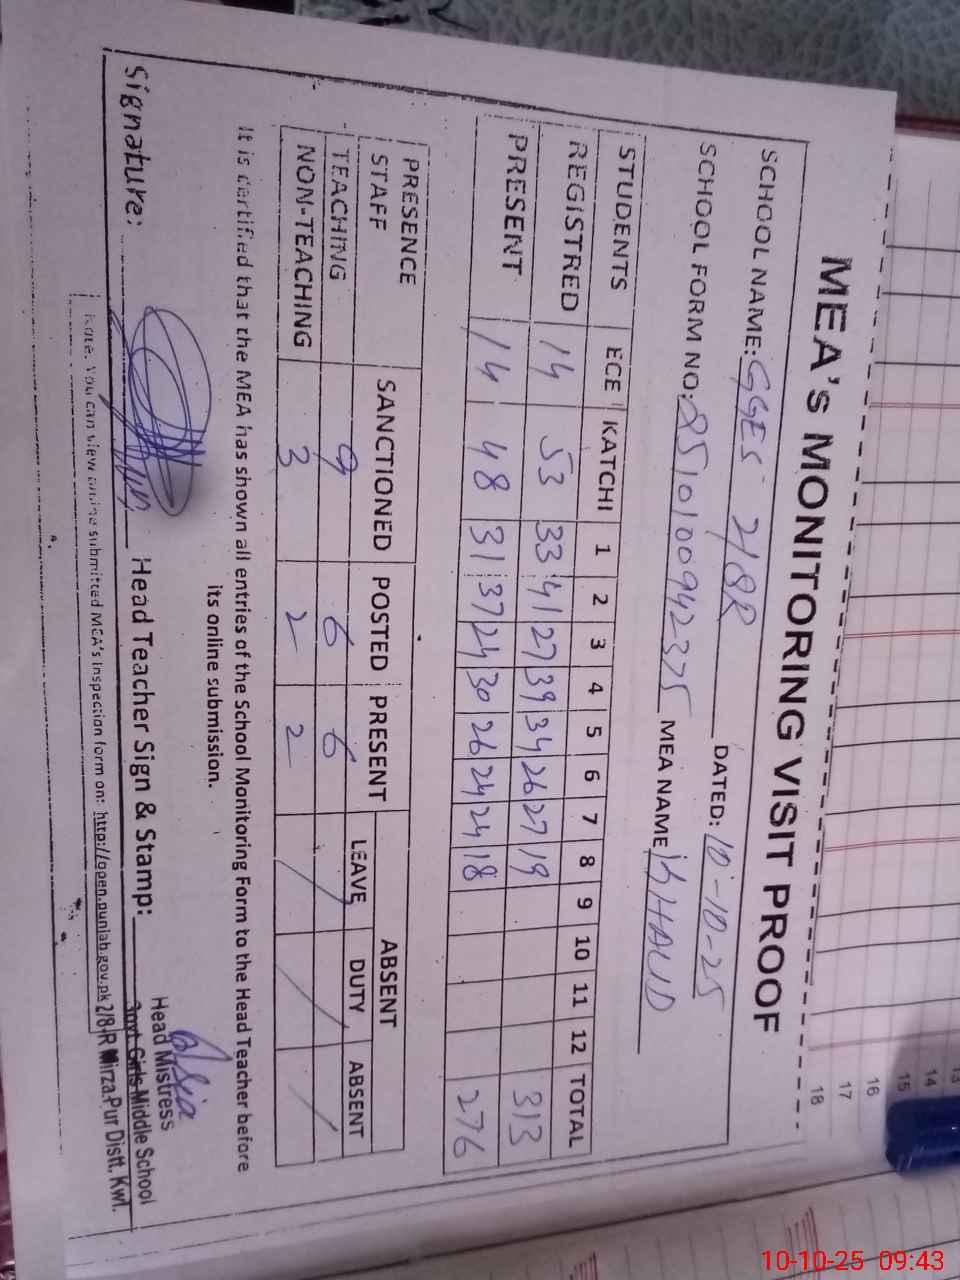 MEA's MONITORING VISIT PROOF
SCHOOL NAME: GGES 2/8R DATED: 10-10-25
SCHOOL FORM NO: MEA NAME
STUDENTS ECE KATCHI 1 2 3 4 5 6 7 8 9 10 11 12 TOTAL
REGISTRED 14 53 33 41 27 39 34 26 27 19 313
PRESENT 14 48 31 37 24 30 26 24 24 18 276
PRESENCE STAFF SANCTIONED POSTED PRESENT ABSENT
LEAVE DUTY ABSENT
TEACHING 9 6 6
NON-TEACHING 3 2 2
It is certified that the MEA has shown all entries of the School Monitoring Form to the Head Teacher before
its online submission.
Signature: Head Teacher Sign & Stamp:
Asia
Head Mistress
Govt. Girls Middle School
2/8-R Mirza Pur Distt. Kwl.
Note. You can view online submitted MEA's Inspection form on: http://open.punjab.gov.pk
13
14
15
16
17
18
10-10-25 09:43